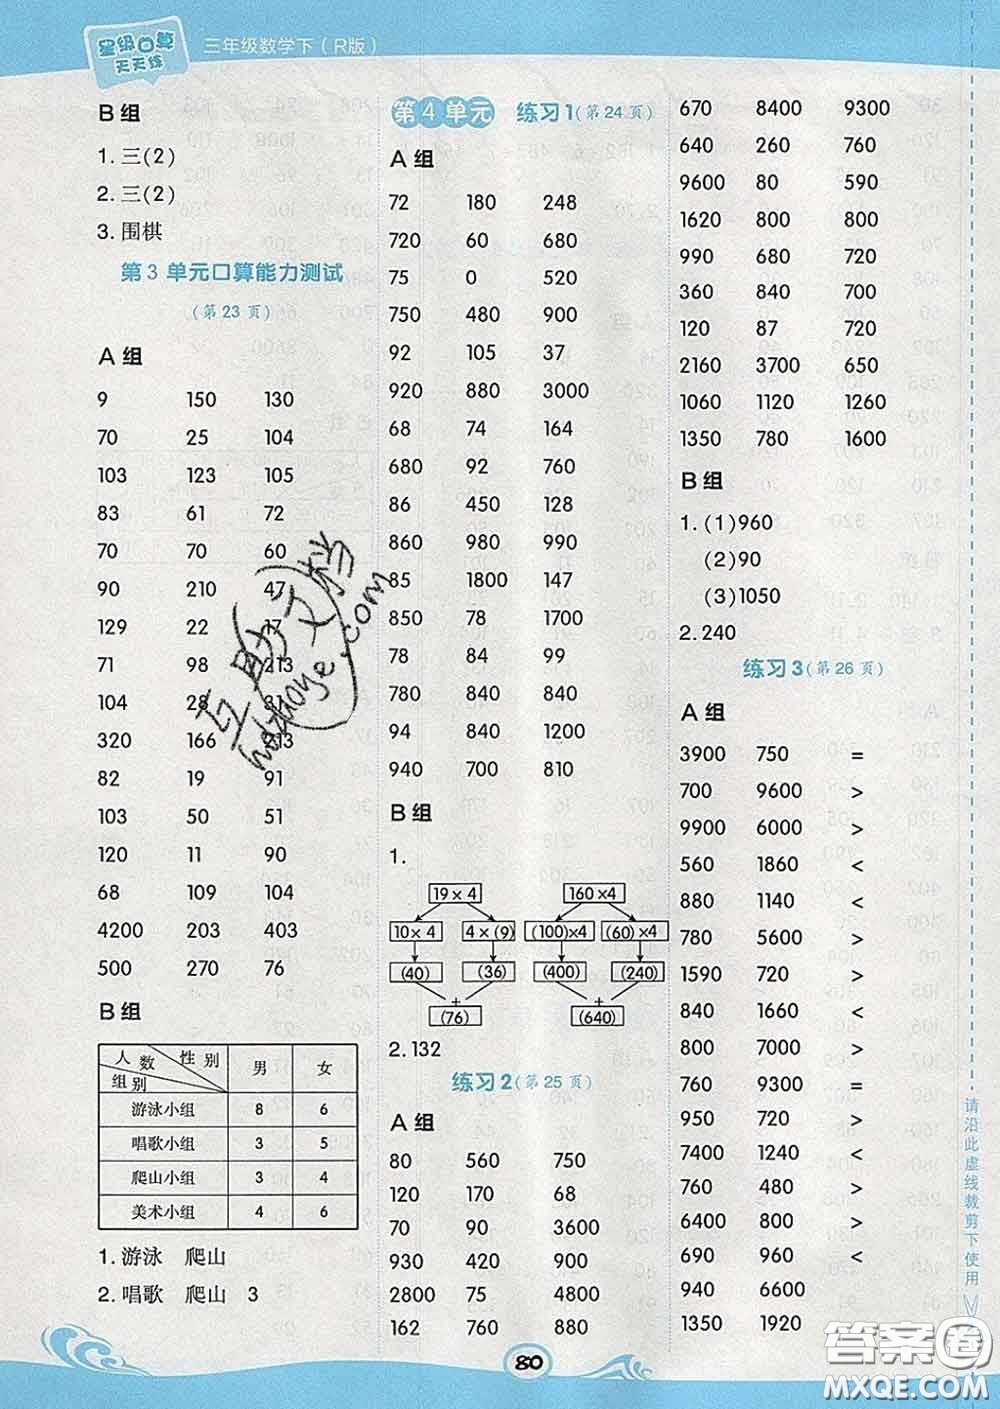 星级口算
天天练
三年级数学下（R版）
B 组
1. 三(2)
2. 三(2)
3. 围棋
第 3 单元口算能力测试
(第 23 页)
A 组
9 150 130
70 25 104
103 123 105
83 61 72
70 70 60
90 210 47
129 22 17
71 98 213
104 28 31
320 166 213
82 19 91
103 50 51
120 11 90
68 109 104
4200 203 403
500 270 76
B 组
人 数 性 别 组 别 男 女
游泳小组 8 6
唱歌小组 3 5
爬山小组 3 4
美术小组 4 6
1. 游泳 爬山
2. 唱歌 爬山 3
第 4 单元 练习 1(第 24 页)
A 组
72 180 248
720 60 680
75 0 520
750 480 900
92 105 37
920 880 3000
68 74 164
680 92 760
86 450 128
860 980 990
85 1800 147
850 78 1700
78 84 99
780 840 840
94 840 1200
940 700 810
B 组
1.
19 × 4 160 ×4
10 × 4 4 × (9) (100)×4 (60) ×4
(40) (36) (400) (240)
+ +
(76) (640)
2. 132
练习 2(第 25 页)
A 组
80 560 750
120 170 68
70 90 3600
930 420 900
2800 75 4800
162 760 880
670 8400 9300
640 260 760
9600 80 590
1620 800 800
990 680 720
360 840 700
120 87 720
2160 3700 650
1060 1120 1260
1350 780 1600
B 组
1. (1)960
(2)90
(3)1050
2. 240
练习 3(第 26 页)
A 组
3900 750 =
700 9600 >
9900 6000 >
560 1860 <
880 1140 <
780 5600 >
1590 720 >
840 1660 <
800 7000 >
760 9300 =
950 720 >
7400 1240 <
760 480 >
6400 800 >
690 960 <
940 6600
1350 1920
请沿此虚线裁剪下使用
80
互助文档
hdzhoye.com
答案圈
MXQE.COM